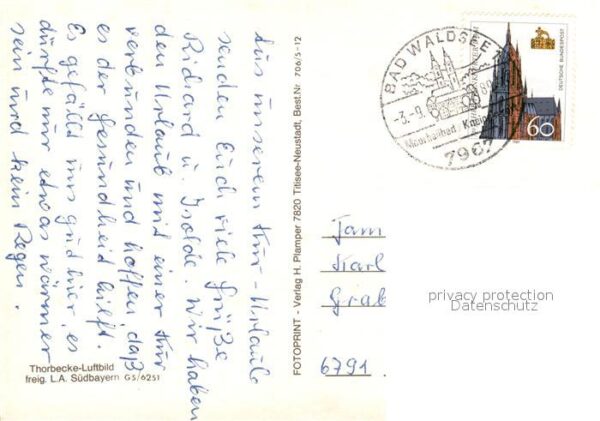 Aus unserem Kur-Urlaub
senden Euch viele Grüße
Richard u. Isolde. Wir haben
den Urlaub mit einer Kur
verbunden und hoffen, daß
es der Gesundheit hilft.
Es gefällt uns gut hier, es
dürfte nur etwas wärmer
sein und kein Regen.
Thorbecke-Luftbild
freig. L.A. Südbayern GS/6251
FOTOPRINT - Verlag H. Plamper 7820 Titisee-Neustadt, Best.Nr 706/5-12
BAD WALDSEE
-3.-9.
89
Moorheilbad
Kneipp
7967
DEUTSCHE BUNDESPOST
60
Fam
Karl
Grab
6791
privacy protection
Datenschutz